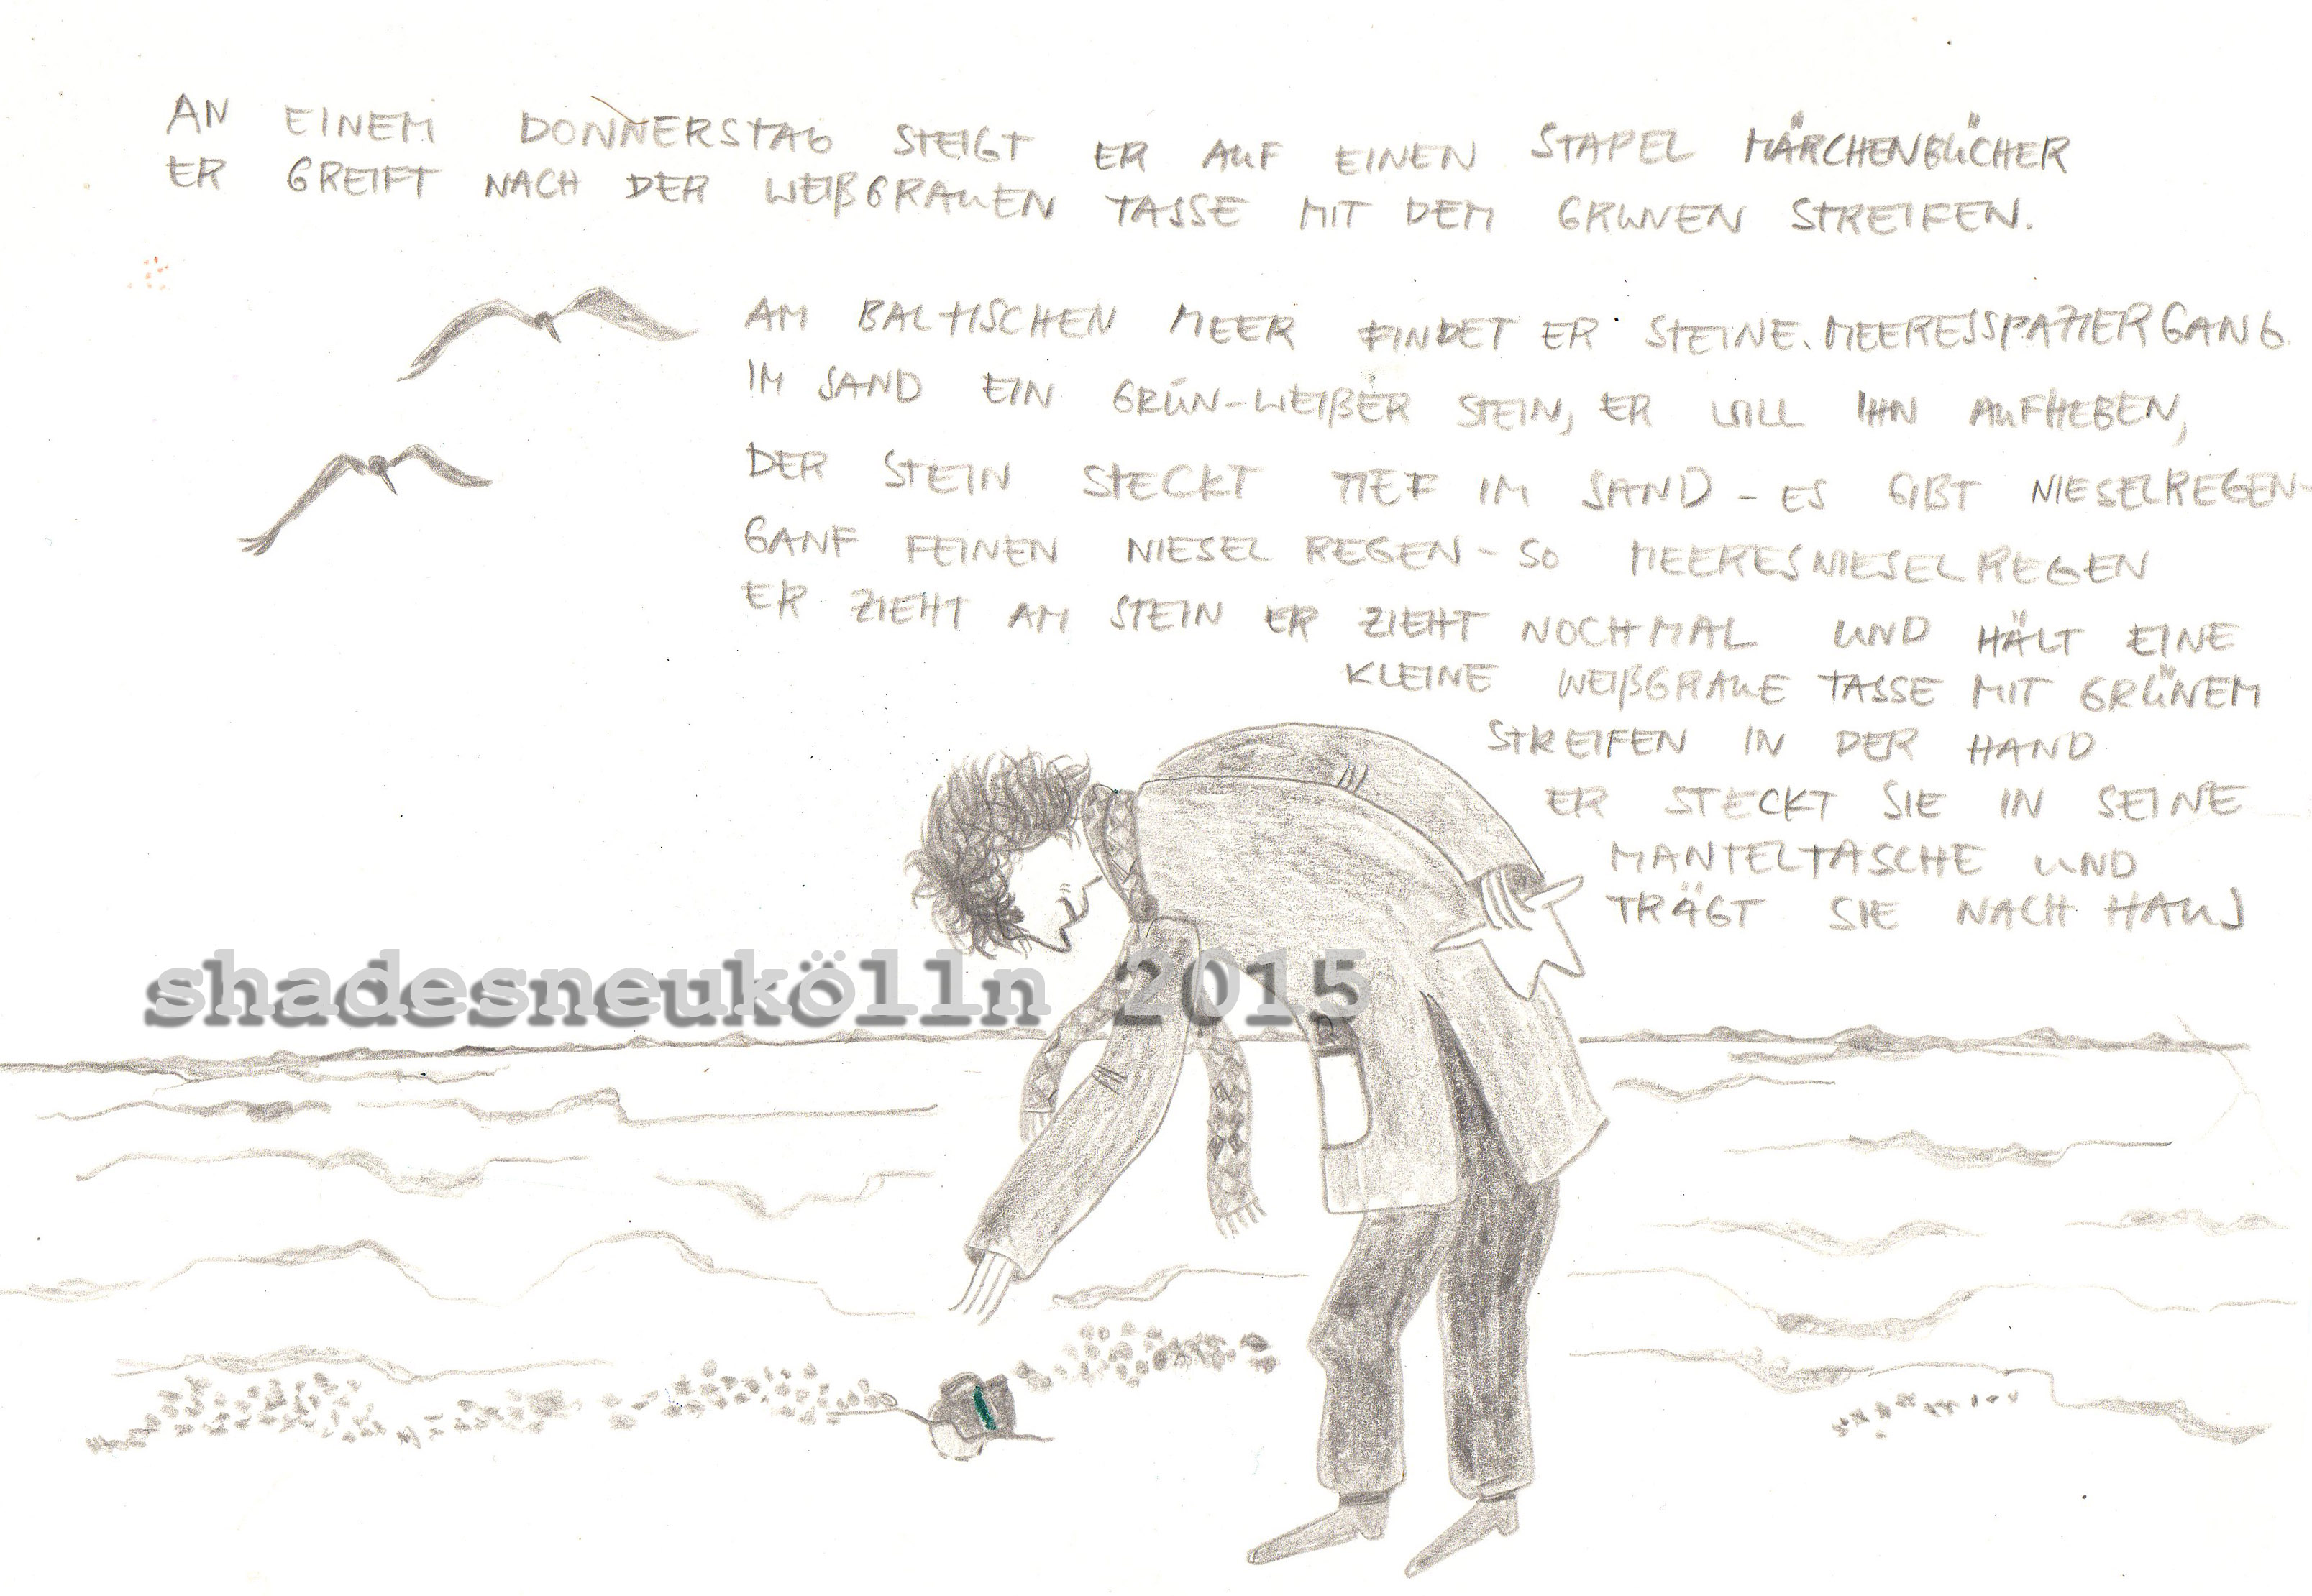 AN EINEM DONNERSTAG STEIGT ER AUF EINEN STAPEL MÄRCHENBÜCHER
ER GREIFT NACH DER WEIßGRAUEN TASSE MIT DEM GRÜNEN STREIFEN.
AM BALTISCHEN MEER FINDET ER STEINE. MEERESSPAZIERGANG
IM SAND EIN GRÜN-WEIßER STEIN, ER WILL IHN AUFHEBEN,
DER STEIN STECKT TIEF IM SAND - ES GIBT NIESELREGEN-
GANZ FEINEN NIESELREGEN - SO MEERESNIESELREGEN
ER ZIEHT AM STEIN ER ZIEHT NOCHMAL UND HÄLT EINE
KLEINE WEIßGRAUE TASSE MIT GRÜNEM
STREIFEN IN DER HAND
ER STECKT SIE IN SEINE
MANTELTASCHE UND
TRÄGT SIE NACH HAUS
shadesneukölln 2015